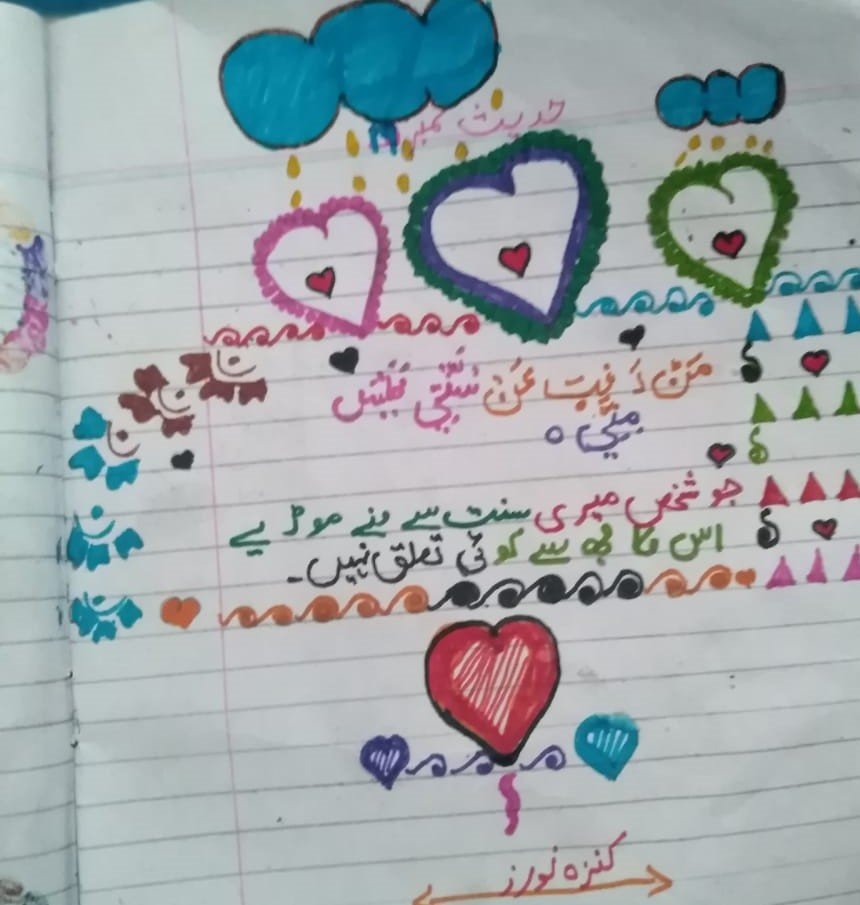 حدیث نمبر
مَنْ رَغِبَ عَنْ سُنَّتِي فَلَيْسَ
مِنِّي ه
جو شخص میری سنت سے منے موڑ لے
اس کا مجھ سے کوئی تعلق نہیں۔
کنزہ نورز